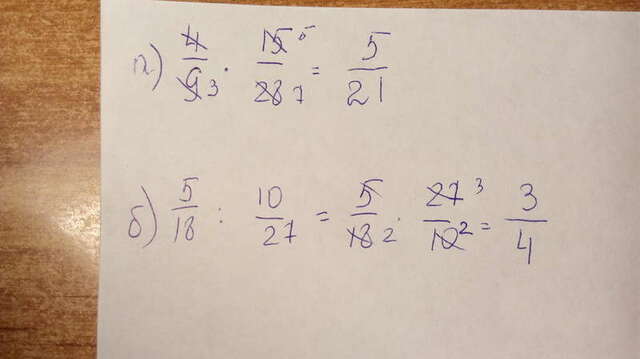 а) 4/9 3 · 15 5/28 7 = 5/21
б) 5/18 : 10/27 = 5/18 2 · 27 3/10 2 = 3/4